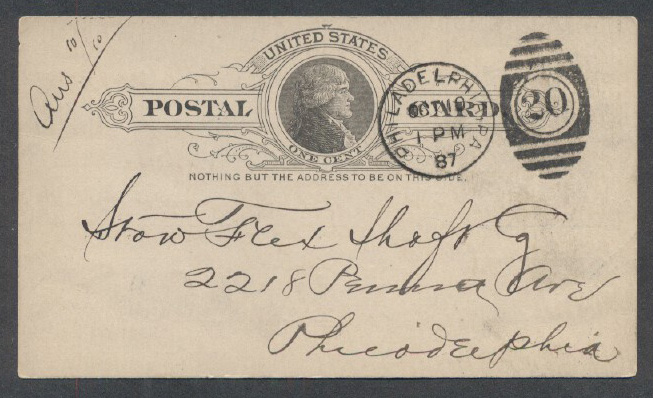 Ans 10/10
UNITED STATES
POSTAL CARD
ONE CENT
NOTHING BUT THE ADDRESS TO BE ON THIS SIDE.
PHILADELPHIA PA
OCT 10
1 PM
87
20
Stow Flex Shaft Co
2218 Penna Ave
Philadelphia